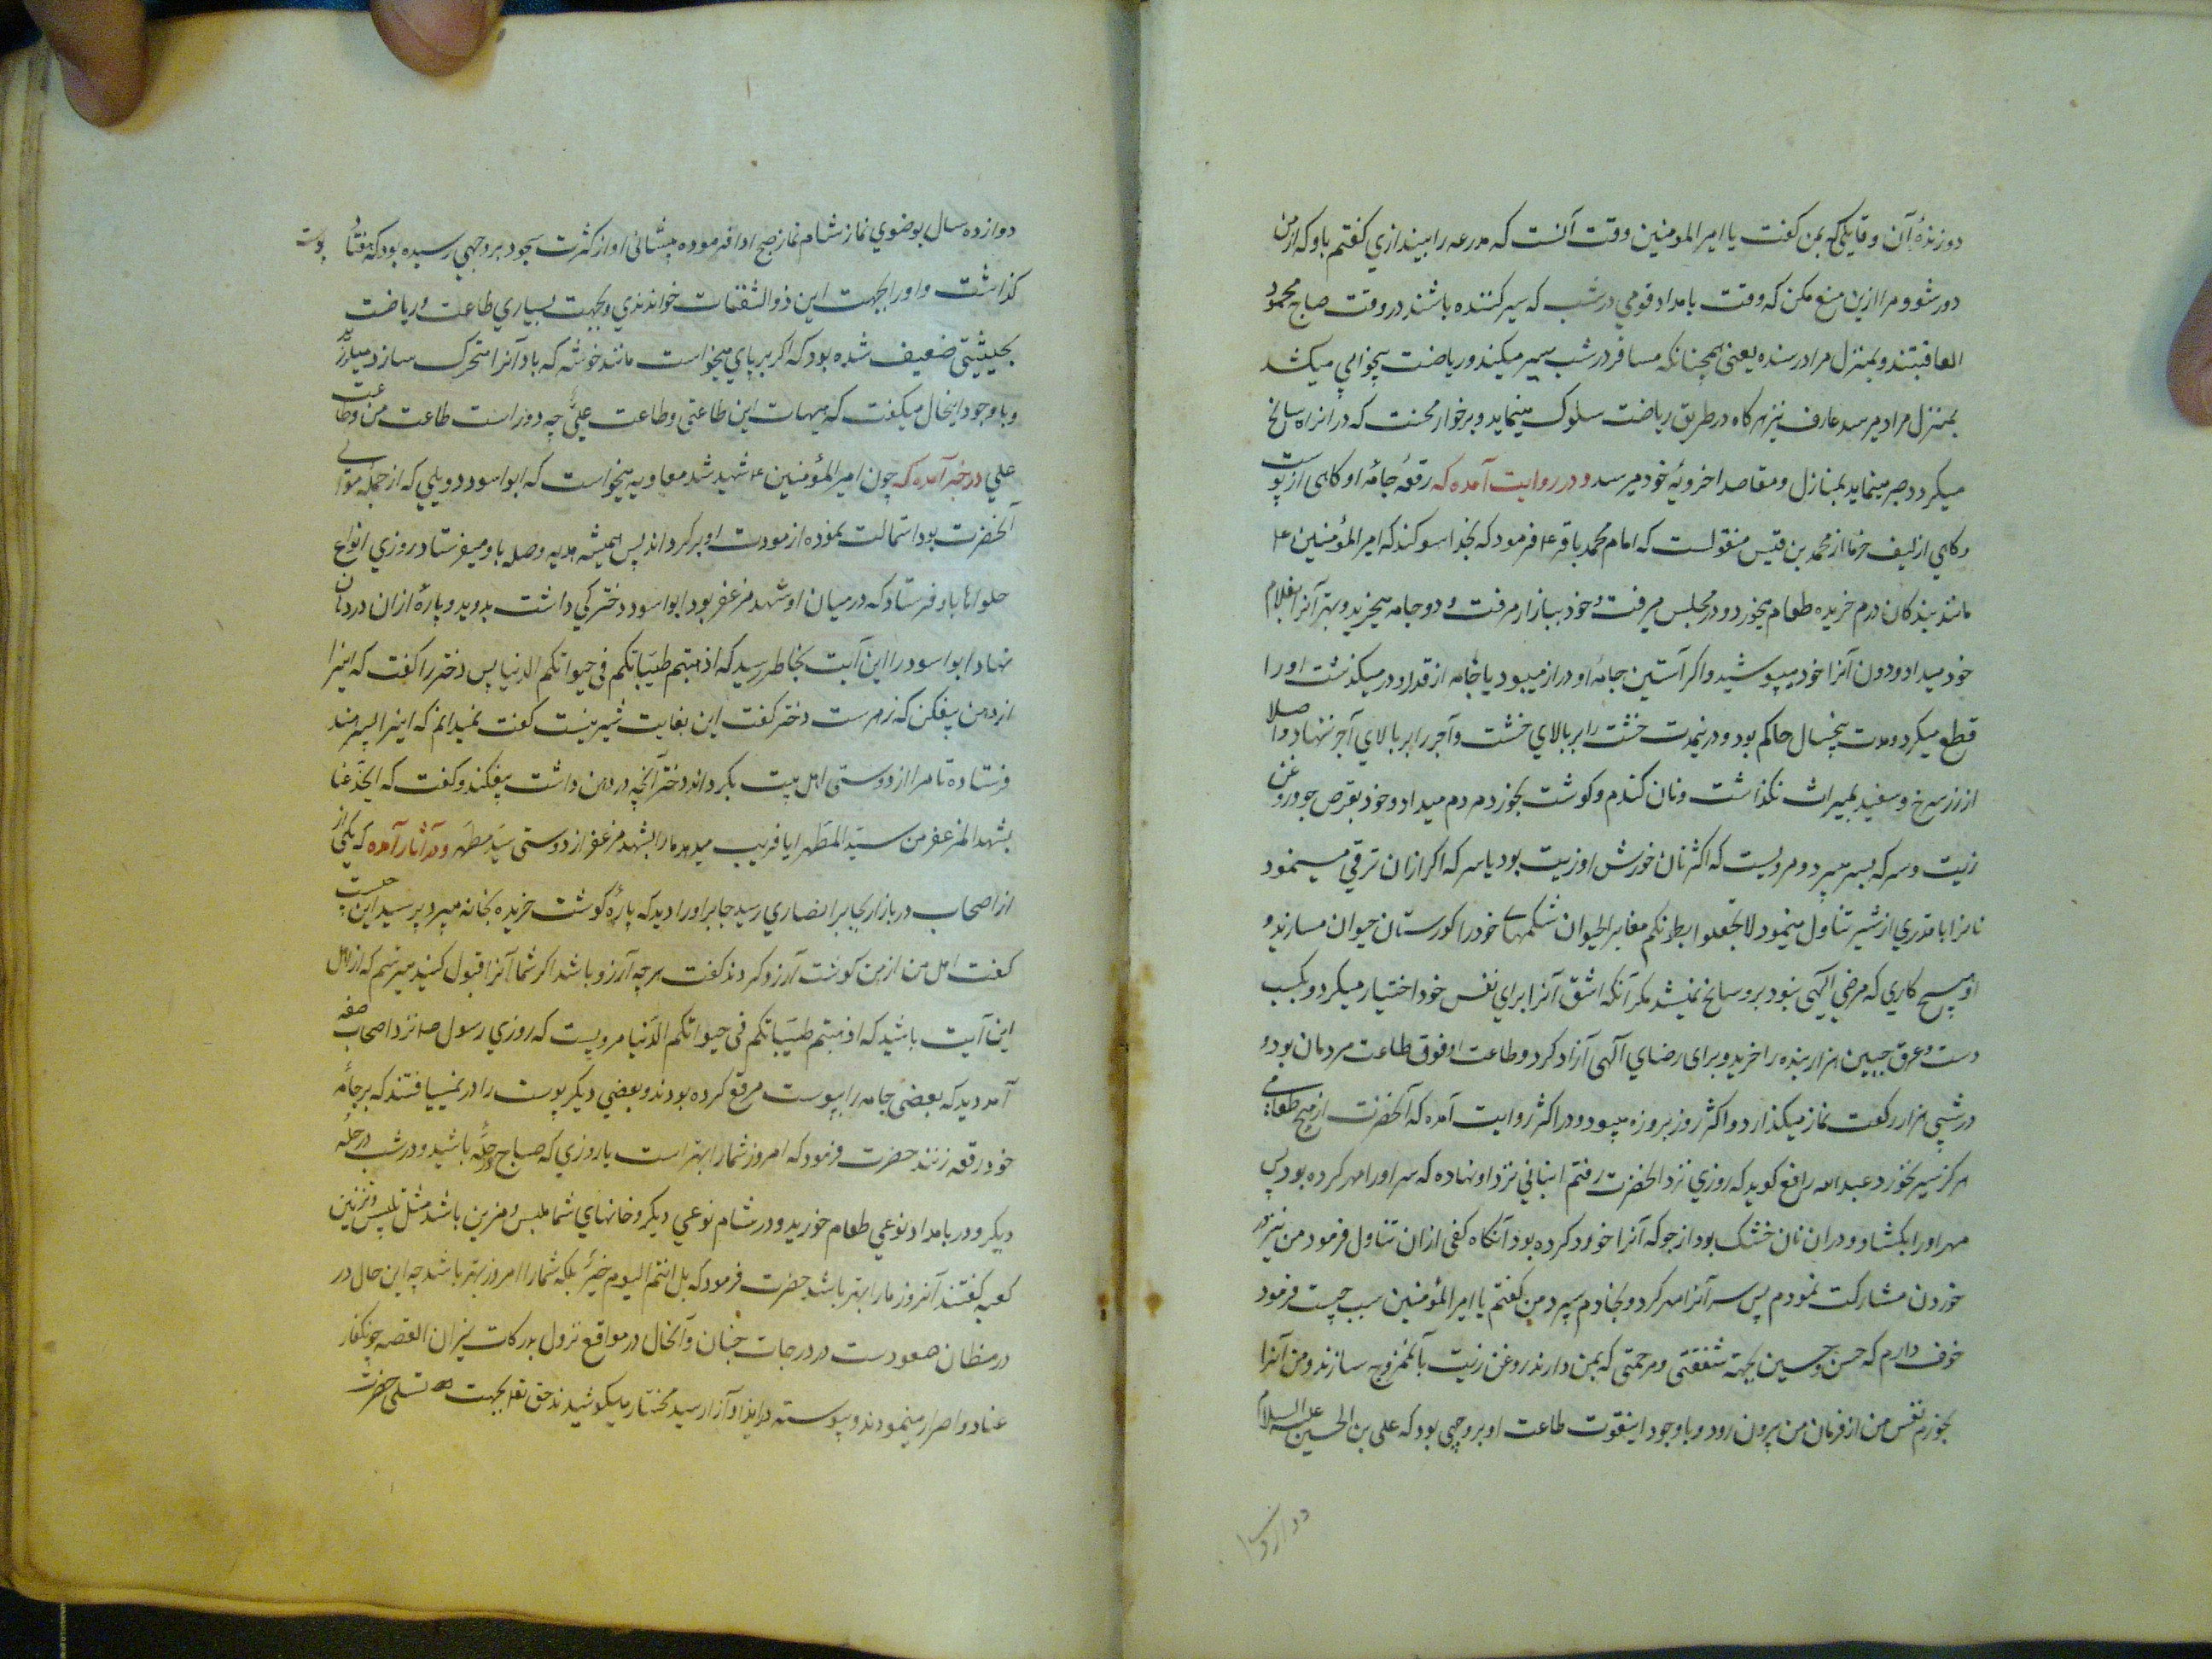 دوزندهٔ آن و قایلی که بمن گفت یا امیر المومنین وقت آنست که مدرعه را بیندازی گفتم باو که از من
دور شو و مرا ازین منع مکن که وقت بامداد قومی در شب که سیر کننده باشند در وقت صباح محمود
العاقبتند و بمنزل مراد رسنده یعنی همچنانکه مسافر در شب سیر میکند و ریاضت بیخوابی میکشد
بمنزل مراد میرسد عارف نیز هرگاه در طریق ریاضت سلوک مینماید و بر خار محنت که در ان راه سانح
میگردد صبر مینماید بمنازل و مقاصد اخرویهٔ خود میرسد و در روایت آمده که رقعهٔ جامهٔ او گاهی از پوست
و گاهی از لیف خرما از محمد بن قیس منقولست که امام محمد باقر ع فرمود که بخدا سوگند که امیر المؤمنین ع
مانند بندگان درم خریده طعام میخورد و در مجلس میرفت و خود ببازار میرفت و دو جامه میخرید و بهتر آنرا بغلام
خود میداد و دون آنرا خود میپوشید و اگر آستین جامهٔ او دراز میبود یا جامه از قد او در میگذشت او را
قطع میکرد و مدت پنجسال حاکم بود و درینمدت خشت را بر بالای خشت و آجر را بر بالای آجر ننهاد و اصلا
از زر سرخ و سفید بمیراث نگذاشت و نان گندم و گوشت بخورد مردم میداد و خود بقرص جو و روغن
زیت و سرکه بسر میبرد و مرویست که اکثر نان خورش او زیت بود یا سرکه اگر ازان ترقی مینمود
نانرا با قدری از شیر تناول مینمود لا تجعلوا بطونکم مقابر الحیوان شکمهای خود را گورستان حیوان مسازید و
او هیچ کاری که مرضی آلهی بود برو سانح نمیشد مگر آنکه اشق آنرا برای نفس خود اختیار میکرد و بکسب
دست و عرق جبین هزار بنده را خرید و برای رضای آلهی آزاد کرد و طاعت او فوق طاعت مردمان بود و
در شبی هزار رکعت نماز میگذارد و اکثر روز بروزه میبود و در اکثر روایت آمده که آنحضرت از هیچ طعامی
هرگز سیر نخورد عبد الله رافع گوید که روزی نزد انحضرت رفتم انبانی نزد او نهاده که سر او را مهر کرده بود پس
مهر او را بگشاد و در ان نان خشک بود از جو که آنرا خورد کرده بود آنگاه کفی ازان تناول فرمود من نیز در
خوردن مشارکت نمودم پس سر آنرا مهر کرد و بخادم سپرد من گفتم یا امیر المؤمنین سبب چیست فرمود
خوف دارم که حسن و حسین بجهة شفقتی و مرحمتی که بمن دارند روغن زیت بآن ممزوج سازند و من آنرا
بخورم نفس من از فرمان من بیرون رود و با وجود اینقوت طاعت او بروجهی بود که علی بن الحسین علیه السلام
دوازده سال
دوازده سال بوضوی نماز شام نماز صبح ادا فرموده پیشانی او از کثرت سجود بروجهی رسیده بود که هفتاد پوست
گذاشت و او را بجهت این ذو الثفنات خواندندی و بجهت بسیاری طاعت و ریاضت
بحیثیتی ضعیف شده بود که اگر بر پای میخواست مانند خوشه که باد آنرا متحرک سازد میلرزید
و با وجود اینحال میگفت که هیهات این طاعتی و طاعت علی چه دور است طاعت من و طاعت
علی در خبر آمده که چون امیر المؤمنین ع شهید شد معاویه میخواست که ابو اسود دویلی که از جمله موالی
آنحضرت بود استمالت نموده از مودت او برگرداند پس همیشه هدیه و صله باو میفرستاد روزی انواع
حلواها باو فرستاد که در میان او شهد مزعفر بود ابو اسود دخترکی داشت بدوید و پارهٔ ازان در دهان
نهاد ابو اسود را این آیت بخاطر رسید که اذهبتم طیباتکم فی حیواتکم الدنیا پس دختر را گفت که اینرا
از دهن بیفکن که زهرست دختر گفت این بغایت شیرینست گفت نمیدانم که اینرا پسر هند
فرستاده تا مرا از دوستی اهل بیت بگرداند دختر آنچه در دهن داشت بیفکند و گفت که اتخدعنا
بشهد المزعفر من سید المطهر ایا فریب میدهد ما را بشهد مزعفر از دوستی سید مطهر و در آثار آمده که یکی از
از اصحاب در بازار بجابر انصاری رسید جابر او را دید که پارهٔ گوشت خریده بخانه میبرد پرسید این چیست
گفت اهل من ازین گوشت آرزو کردند گفت هرچه آرزو باشد اگر شما آنرا قبول کنید میترسم که از اهل
این آیت باشید که اذهبتم طیباتکم فی حیواتکم الدنیا مرویست که روزی رسول ص نزد اصحاب صفه
آمد دید که بعضی جامه را بپوست مرقع کرده بودند و بعضی دیگر پوست را در نمییافتند که بر جامهٔ
خود رقعه زنند حضرت فرمود که امروز شما را بهتر است یا روزی که صباح در حلّه باشید و در شب در حلّه
دیگر و در بامداد نوعی طعام خورید و در شام نوعی دیگر و خانهای شما ملبس و مزین باشد مثل تلبیس و تزیین
کعبه گفتند آنروز ما را بهتر باشد حضرت فرمود که بل انتم الیوم خیر بلکه شما را امروز بهتر باشد چه این حال در
در مظان صعودست در درجات جنان و آنحال در مواقع نزول بدرکات نیران القصه چون کفار
عناد و اصرار مینمودند و پیوسته در ایذا و آزار سید مختار میکوشیدند حق تعالی بجهت تسلی حضرت